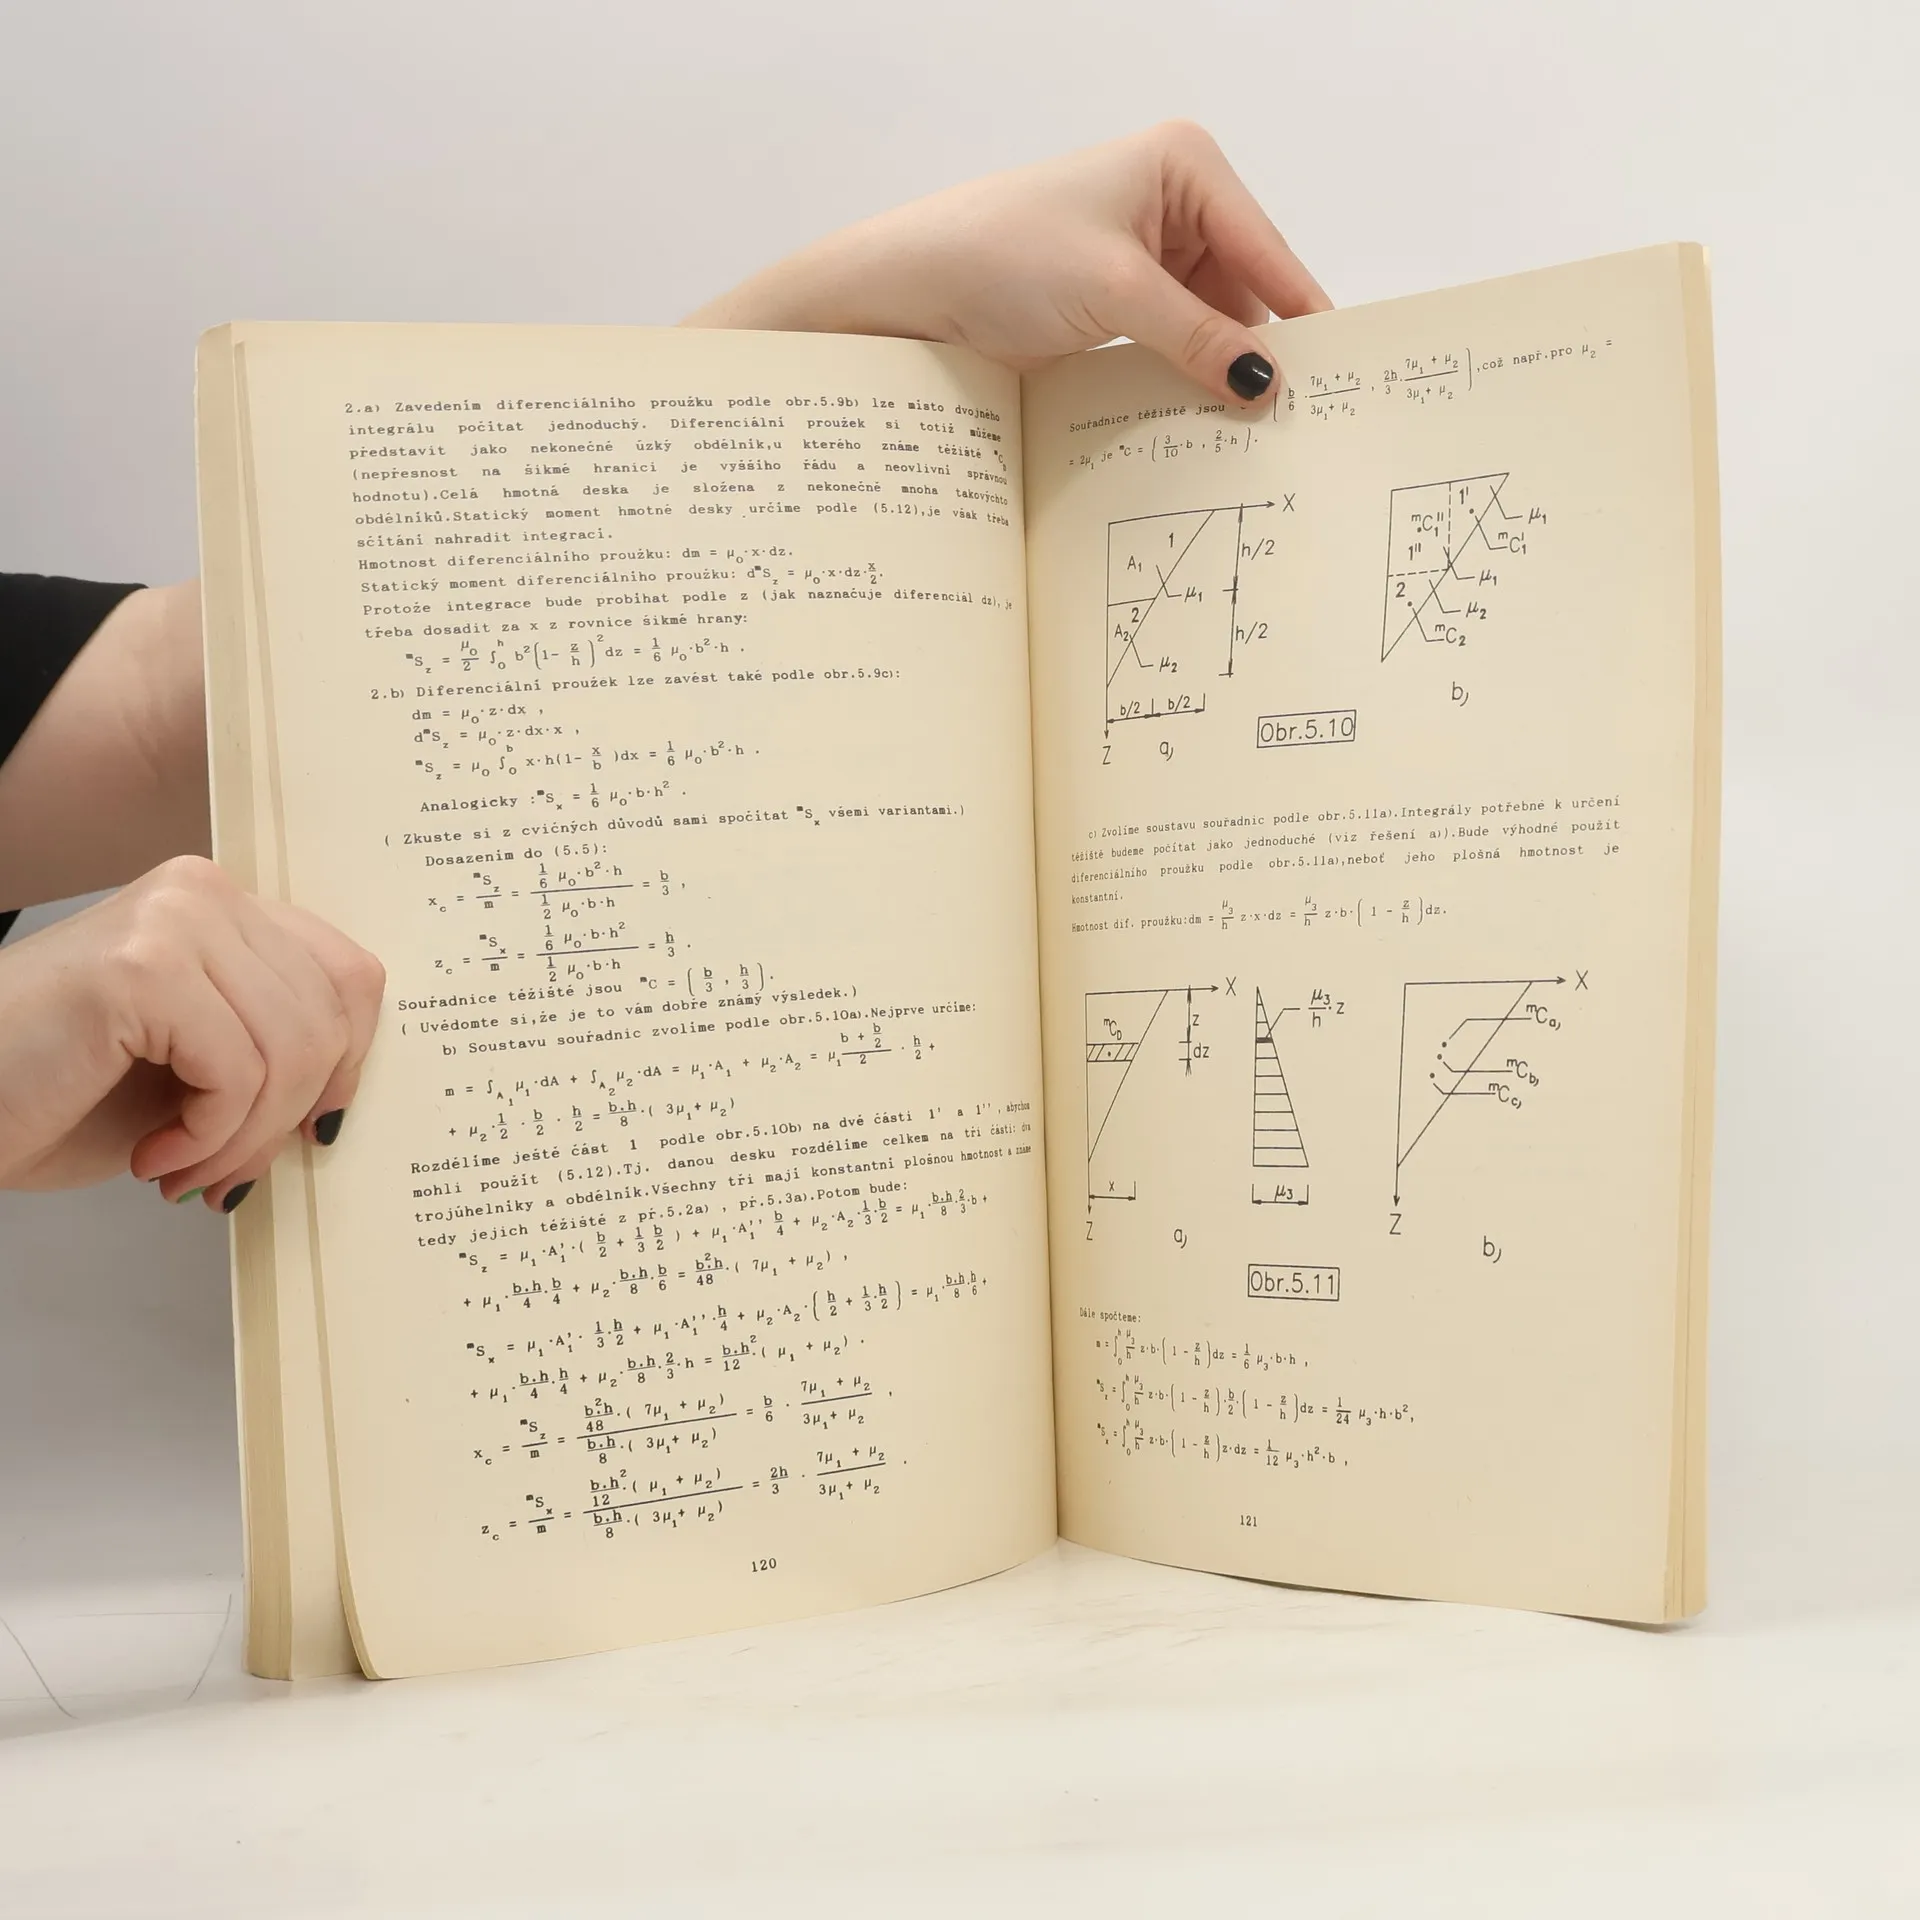 2.a) Zavedením diferenciálního proužku podle obr.5.9b) lze místo dvojného
integrálu počítat jednoduchý. Diferenciální proužek si totiž můžeme
představit jako nekonečně úzký obdélník,u kterého známe těžiště ᵐC_D
(nepřesnost na šikmé hranici je vyššího řádu a neovlivní správnou
hodnotu).Celá hmotná deska je složena z nekonečně mnoha takovýchto
obdélníků.Statický moment hmotné desky určíme podle (5.12),je však třeba
sčítání nahradit integrací.
Hmotnost diferenciálního proužku: dm = μ₀·x·dz.
Statický moment diferenciálního proužku: dᵐS_z = μ₀·x·dz·x/2.
Protože integrace bude probíhat podle z (jak naznačuje diferenciál dz), je
třeba dosadit za x z rovnice šikmé hrany:
ᵐS_z = μ₀/2 ∫₀ʰ b²(1- z/h)² dz = 1/6 μ₀·b²·h .
2.b) Diferenciální proužek lze zavést také podle obr.5.9c):
dm = μ₀·z·dx ,
dᵐS_z = μ₀·z·dx·x ,
ᵐS_z = μ₀ ∫₀ᵇ x·h(1- x/b )dx = 1/6 μ₀·b²·h .
Analogicky :ᵐS_x = 1/6 μ₀·b·h² .
( Zkuste si z cvičných důvodů sami spočítat ᵐS_x všemi variantami.)
Dosazením do (5.5):
x_c = ᵐS_z/m = (1/6 μ₀·b²·h)/(1/2 μ₀·b·h) = b/3 ,
z_c = ᵐS_x/m = (1/6 μ₀·b·h²)/(1/2 μ₀·b·h) = h/3 .
Souřadnice těžiště jsou ᵐC = ( b/3 , h/3 ).
( Uvědomte si,že je to vám dobře známý výsledek.)
b) Soustavu souřadnic zvolíme podle obr.5.10a).Nejprve určíme:
m = ∫_A₁ μ₁·dA + ∫_A₂ μ₂·dA = μ₁·A₁ + μ₂·A₂ = μ₁ (b + b/2)/2 · h/2 +
+ μ₂·1/2 · b/2 · h/2 = b.h/8 ·( 3μ₁+ μ₂)
Rozdělíme ještě část 1 podle obr.5.10b) na dvě části 1' a 1'', abychom
mohli použít (5.12).Tj. danou desku rozdělíme celkem na tři části: dva
trojúhelníky a obdélník.Všechny tři mají konstantní plošnou hmotnost a známe
tedy jejich těžiště z př.5.2a) , př.5.3a).Potom bude:
ᵐS_z = μ₁·A₁'·( b/2 + 1/3 b/2 ) + μ₁·A₁''·b/4 + μ₂·A₂·1/3·b/2 = μ₁·b.h/8·2/3·b +
+ μ₁·b.h/4·b/4 + μ₂·b.h/8·b/6 = b².h/48·( 7μ₁ + μ₂) ,
ᵐS_x = μ₁·A₁'· 1/3·h/2 + μ₁·A₁''·h/4 + μ₂·A₂·( h/2 + 1/3·h/2 ) = μ₁·b.h/8·h/6 +
+ μ₁·b.h/4·h/4 + μ₂·b.h/8·2/3·h = b.h²/12·( μ₁ + μ₂) .
x_c = ᵐS_z/m = (b².h/48·( 7μ₁ + μ₂))/(b.h/8·( 3μ₁+ μ₂)) = b/6 · (7μ₁ + μ₂)/(3μ₁+ μ₂) ,
z_c = ᵐS_x/m = (b.h²/12·( μ₁ + μ₂))/(b.h/8·( 3μ₁+ μ₂)) = 2h/3 · (7μ₁ + μ₂)/(3μ₁+ μ₂) .
120
Souřadnice těžiště jsou ( b/6 · (7μ₁ + μ₂)/(3μ₁+ μ₂) , 2h/3 · (7μ₁ + μ₂)/(3μ₁+ μ₂) ),což např.pro μ₂ =
= 2μ₁ je ᵐC = ( 3/10·b , 2/5·h ).
X
1
A₁
μ₁
h/2
2
A₂
μ₂
h/2
b/2 b/2
Z
a)
Obr.5.10
1'
μ₁
ᵐC₁''
ᵐC₁'
1''
μ₁
2
μ₂
ᵐC₂
b)
c) Zvolíme soustavu souřadnic podle obr.5.11a).Integrály potřebné k určení
těžiště budeme počítat jako jednoduché (viz řešení a)).Bude výhodné použít
diferenciálního proužku podle obr.5.11a),neboť jeho plošná hmotnost je
konstantní.
Hmotnost dif. proužku:dm = μ₃/h z·x·dz = μ₃/h z·b·( 1 - z/h )dz.
X
ᵐC_D
z
dz
x
Z
μ₃/h·z
μ₃
a)
Obr.5.11
X
ᵐC_a)
ᵐC_b)
ᵐC_c)
Z
b)
Dále spočteme:
m = ∫₀ʰ μ₃/h z·b·( 1 - z/h )dz = 1/6 μ₃·b·h ,
ᵐS_z = ∫₀ʰ μ₃/h z·b·( 1 - z/h )·b/2·( 1 - z/h )dz = 1/24 μ₃·h·b²,
ᵐS_x = ∫₀ʰ μ₃/h z·b·( 1 - z/h )z·dz = 1/12 μ₃·h²·b ,
121